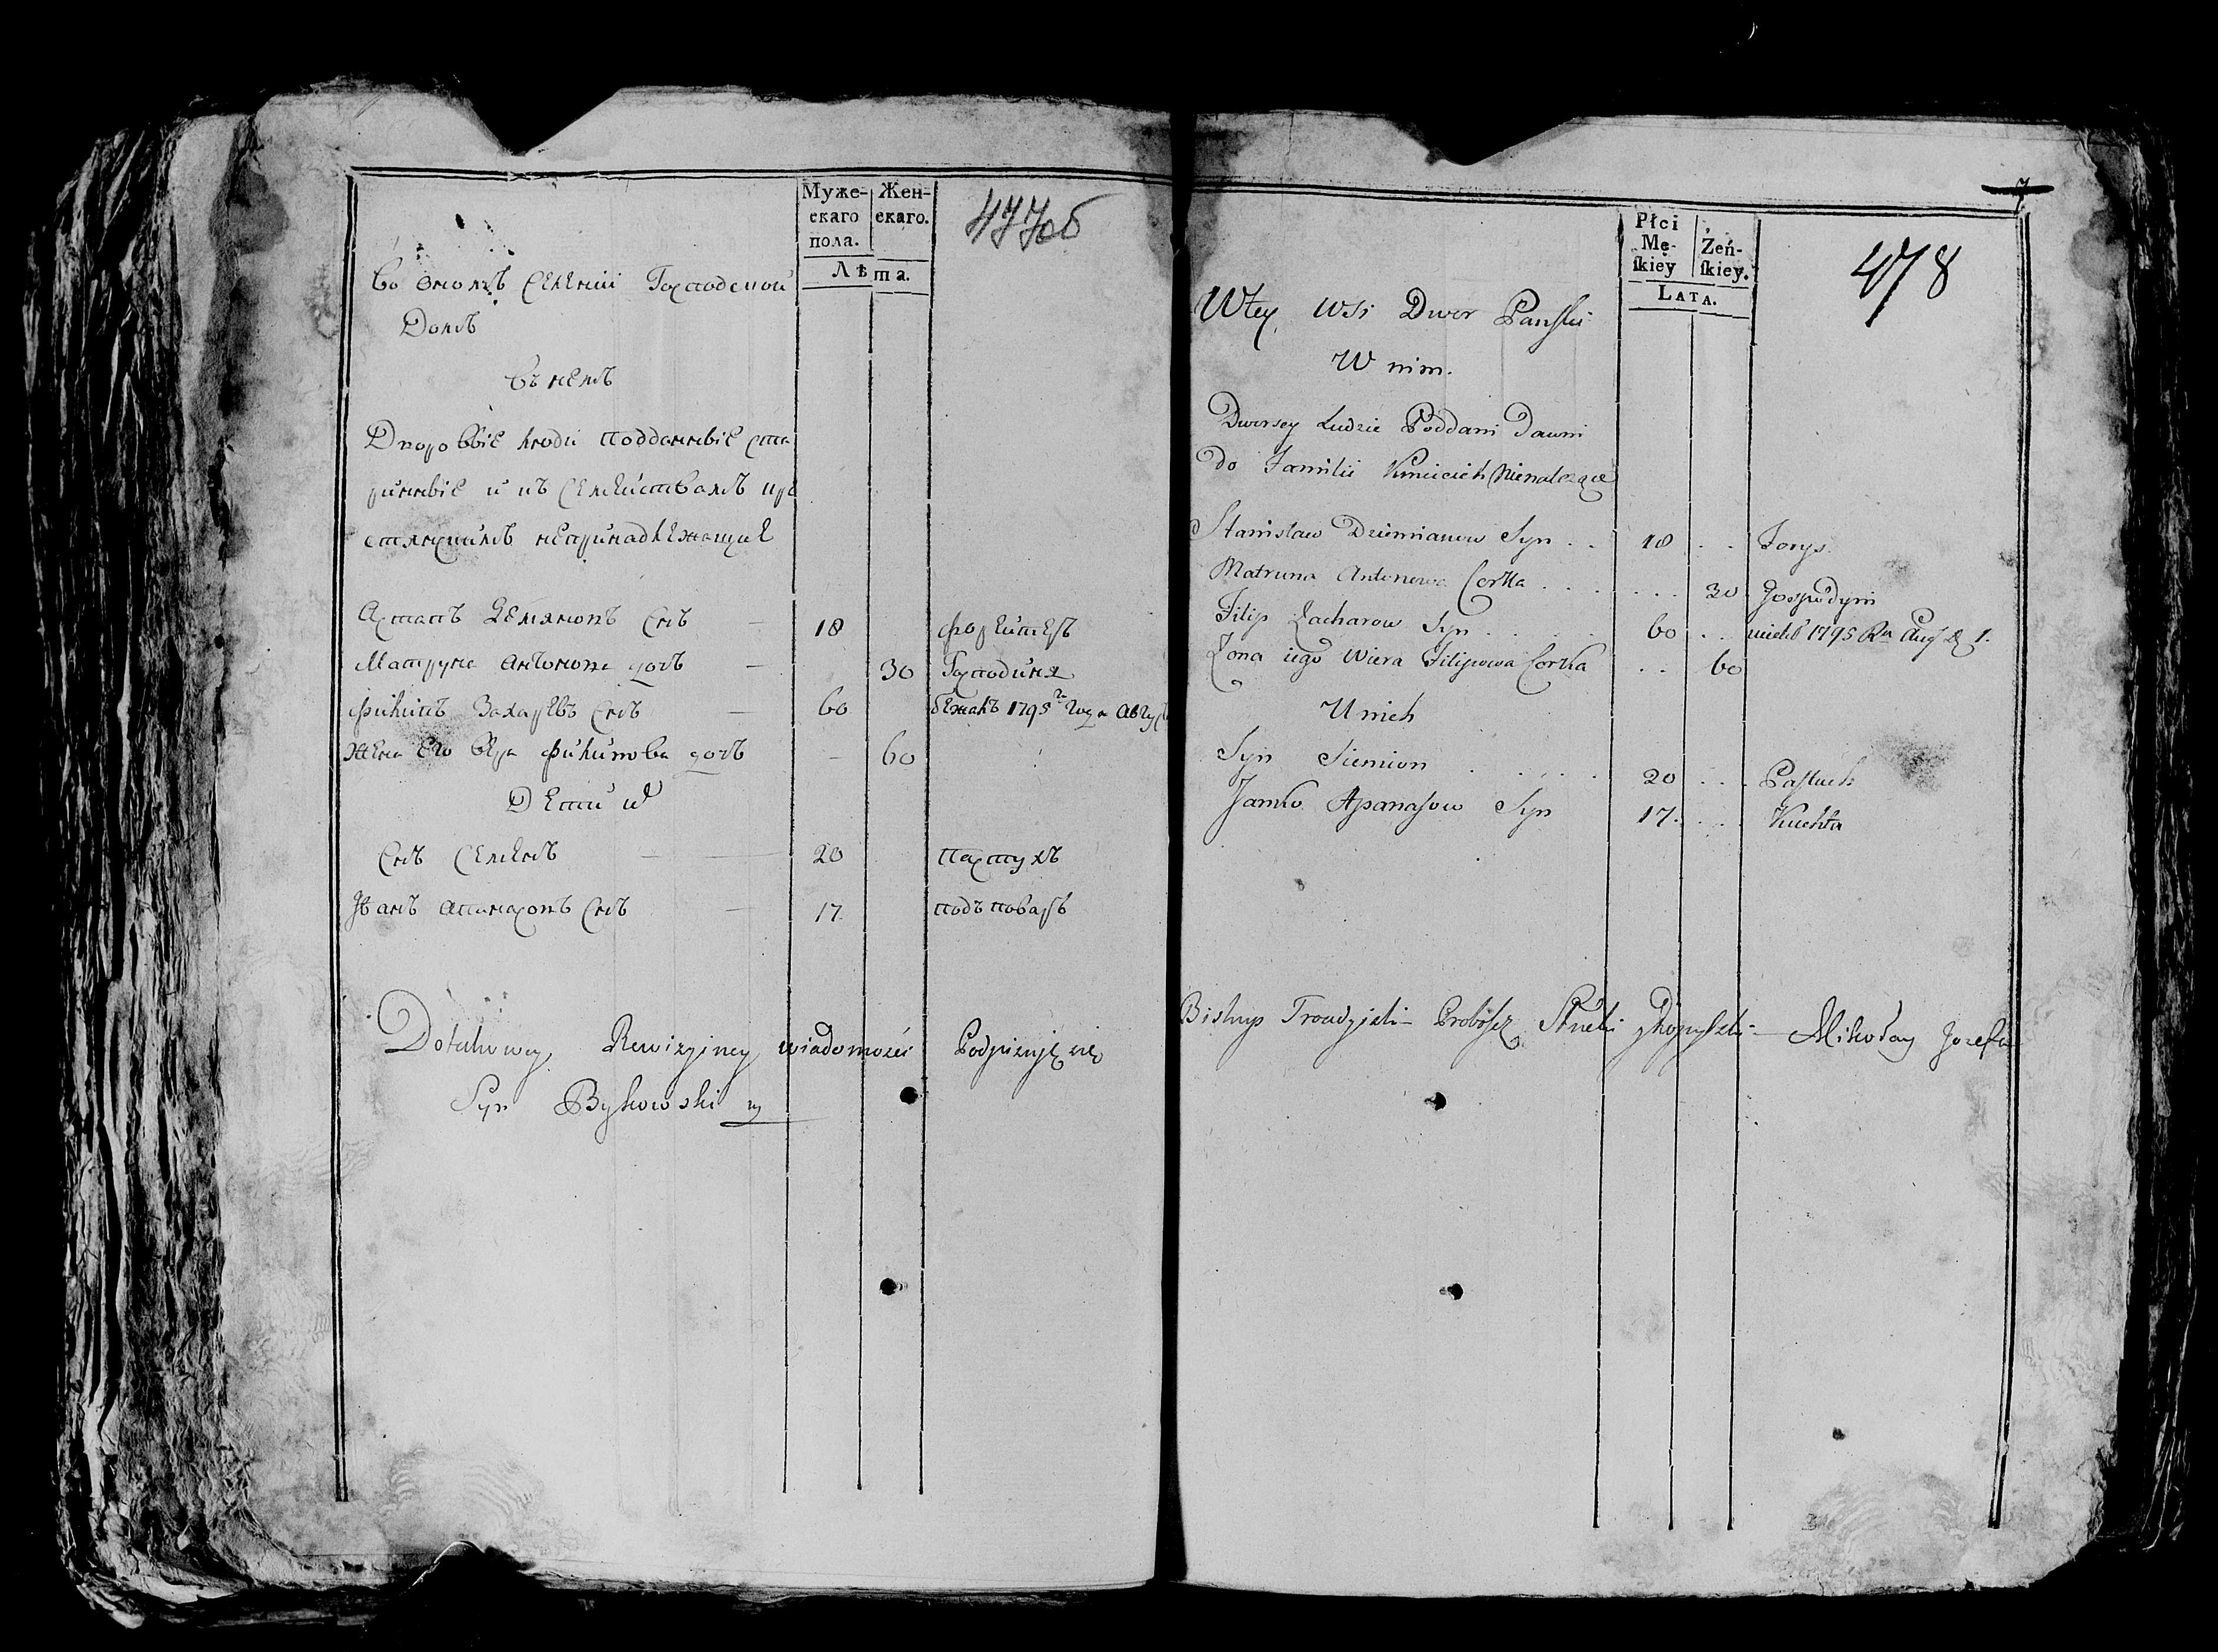 Муже-
скаго
пола.
Жен-
скаго.
Лѣта.
477об
Во ономъ Селеніи Господской
Домъ
Въ немъ
Дворовыіе люди подданныіе ста
ринныіе и къ Семействамъ кре
стянскимъ непринадлежащие
Астапъ Демяновъ Снъ — 18 форейтеръ
Матруна Антонова дочъ — 30 Господиня
Филипъ Захаревъ Снъ — 60 бежалъ 1795го года Авгус
Жена Его Вѣра Филипова дочъ — 60
Дети ихъ
Снъ Семенъ — 20 Пастухъ
Іванъ Апанасовъ Снъ — 17. подъповаръ
Dotakowey Rewizyiney wiadomości Podpisuję się
Syn Bykowski
7
Płci
Mę-
skiey
Żeń-
skiey.
LATA.
478
W tey Wsi Dwor Panski
W nim.
Dworscy Ludzie Poddani Dawni
do Familii Kmiecich Nienalezące
Stanisław Dziemianow Syn . . 18 . . Forys
Matruna Antonowa Corka . . . 30 Gospodyni
Filip Zacharow Syn . . . 60 . . 1795 Aug 1.
Zona iego Wiera Filipowa Corka . . 60
U nich
Syn Siemion . . . . 20 . . . Pastuch
Janko Apanasow Syn 17. . . . Kuchta
Biskup Proboszcz Mikołay Jozefa